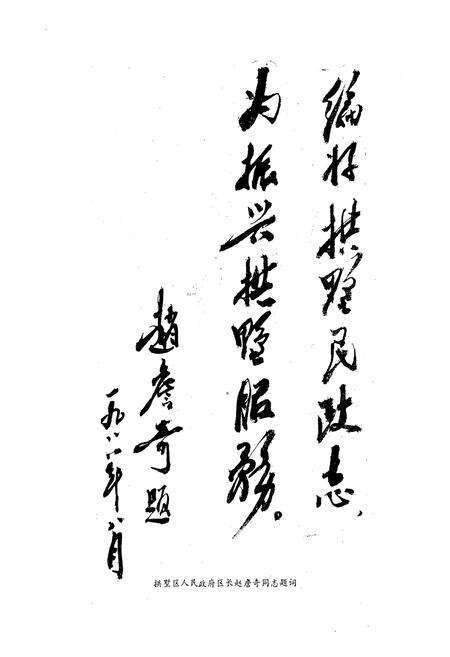 编好拱墅民政志，
为振兴拱墅服務。
趙詹奇题
一九八八年八月
拱墅区人民政府区长赵詹奇同志题词